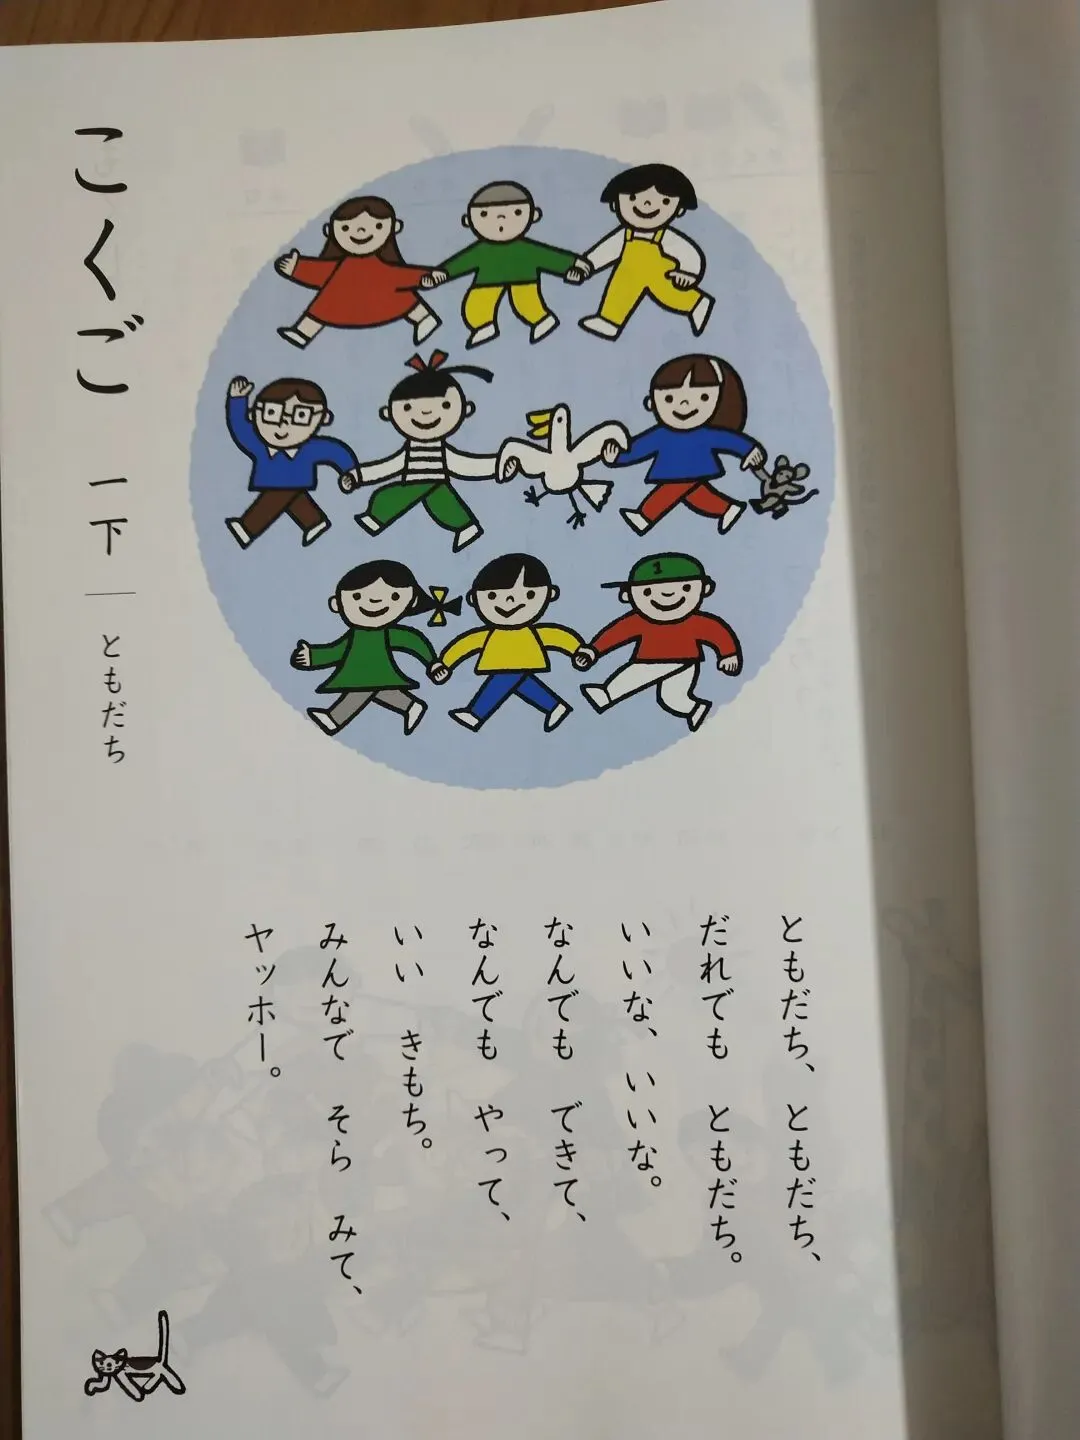 こくご 一下
ともだち
ともだち、ともだち、
だれでも ともだち。
いいな、いいな。
なんでも できて、
なんでも やって、
いい きもち。
みんなで そら みて、
ヤッホー。
1